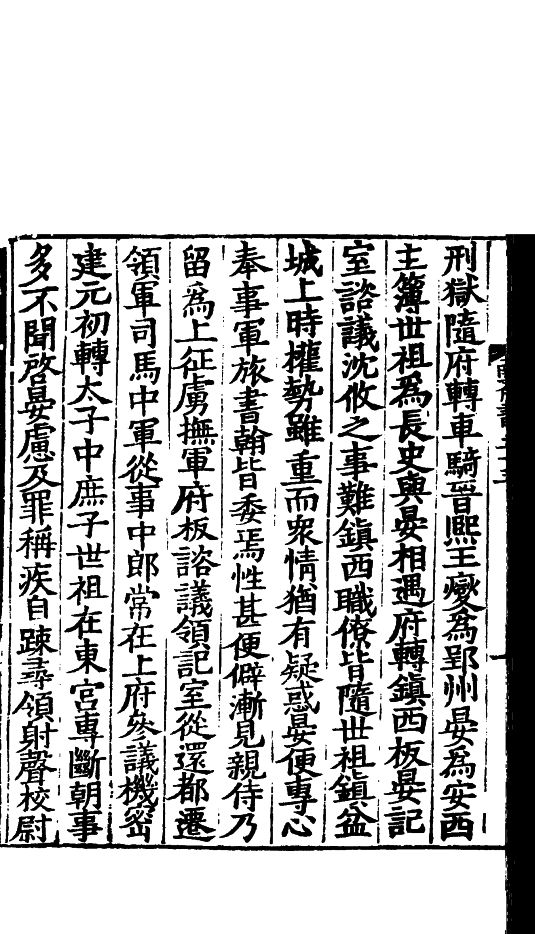 刑獄隨府轉車騎晉熙王燮爲郢州晏爲安西
主簿世祖爲長史與晏相遇府轉鎮西板晏記
室諮議沈攸之事難鎮西職僚皆隨世祖鎮盆
城上時權勢雖重而衆情猶有疑惑晏便專心
奉事軍旅書翰皆委焉性甚便僻漸見親侍乃
留爲上征虜撫軍府板諮議領記室從還都遷
領軍司馬中軍從事中郎常在上府參議機密
建元初轉太子中庶子世祖在東宮專斷朝事
多不聞啓晏慮及罪稱疾自疎尋領射聲校尉